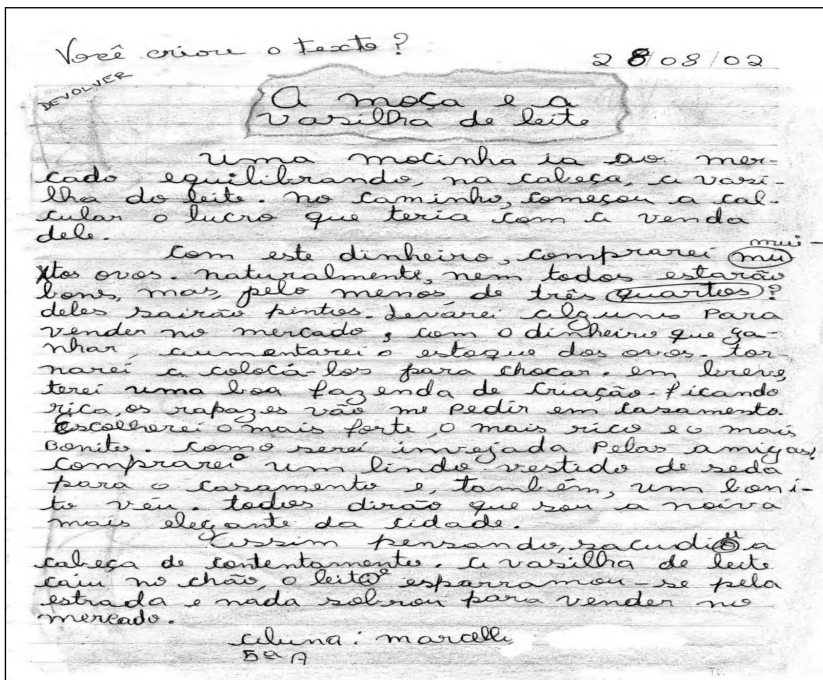 Você criou o texto?
28/08/02
DEVOLVER
A moça e a
vasilha de leite
Uma mocinha ia ao mer-
cado equilibrando, na cabeça, a vasi-
lha do leite. no caminho, começou a cal-
cular o lucro que teria com a venda
dele.
Com este dinheiro, comprarei mu
mui-
tos ovos. naturalmente, nem todos estarão
bons, mas, pelo menos, de três quartos ?
deles sairão pintos. Levarei alguns para
vender no mercado, com o dinheiro que ga-
nhar, aumentarei o estoque dos ovos. tor-
narei a colocá-los para chocar. em breve,
terei uma boa fazenda de criação. ficando
rica, os rapazes vão me pedir em casamento.
Escolherei o mais forte, o mais rico e o mais
Bonito. como serei invejada Pelas amigas!
comprarei um lindo vestido de seda
para o casamento e, também, um boni-
to véu. todos dirão que sou a noiva
mais elegante da cidade.
Assim pensando, sacudiu a
cabeça de contentamento. a vasilha de leite
caiu no chão, o leite esparramou-se pela
estrada e nada sobrou para vender no
mercado.
aluna: marcelli
5ª A